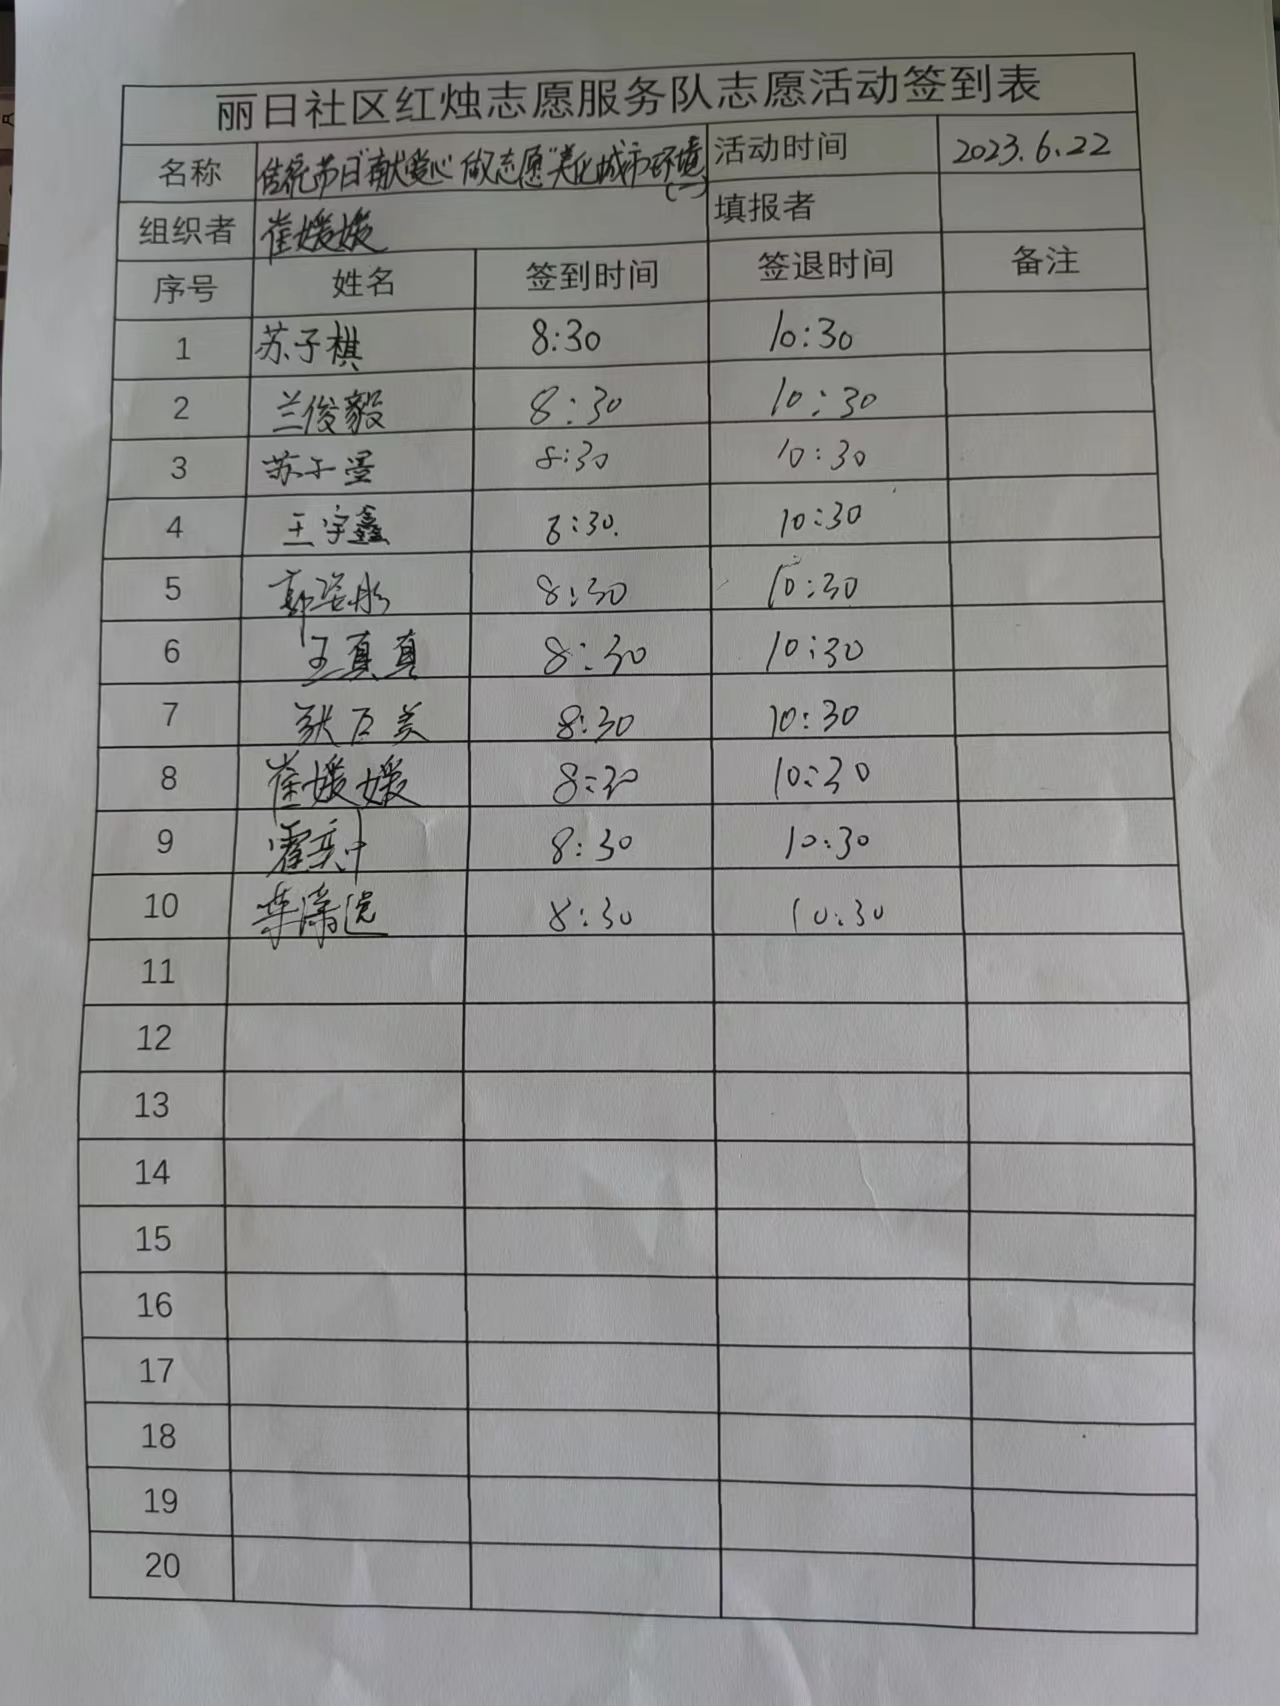 丽日社区红烛志愿服务队志愿活动签到表
名称 传统节日"献爱心 做志愿"美化城市环境(一) 活动时间 2023.6.22
组织者 崔媛媛 填报者
序号 姓名 签到时间 签退时间 备注
1 苏子棋 8:30 10:30
2 兰俊毅 8:30 10:30
3 苏子墨 8:30 10:30
4 王宇鑫 8:30. 10:30
5 8:30 10:30
6 王真真 8:30 10:30
7 8:30 10:30
8 崔媛媛 8:30 10:30
9 8:30 10:30
10 8:30 10:30
11
12
13
14
15
16
17
18
19
20